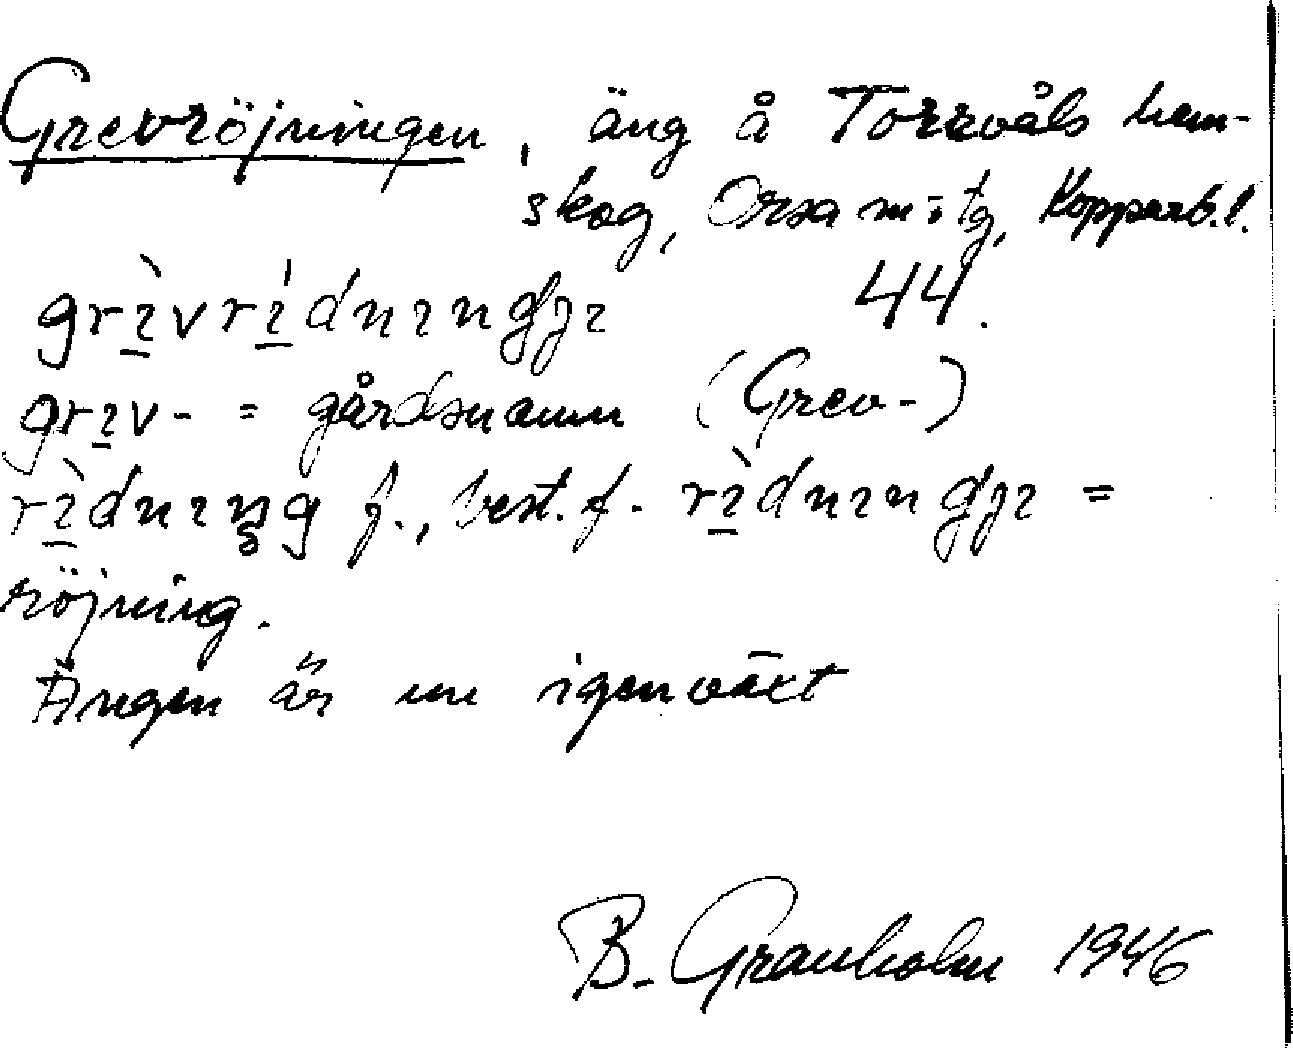 Grevröjningen, äng å Torrvåls hem-
skog, Orsa m:tg, Kopparb.l.
grı̲̀vrı̲́dnıngȷı 44.
grı̲v- = gårdsnamn (Grev-)
rı̲̀dnıŋg f., best. f. rı̲̀dnıngȷı =
röjning.
Ängen är nu igenväxt
B. Granholm 1946